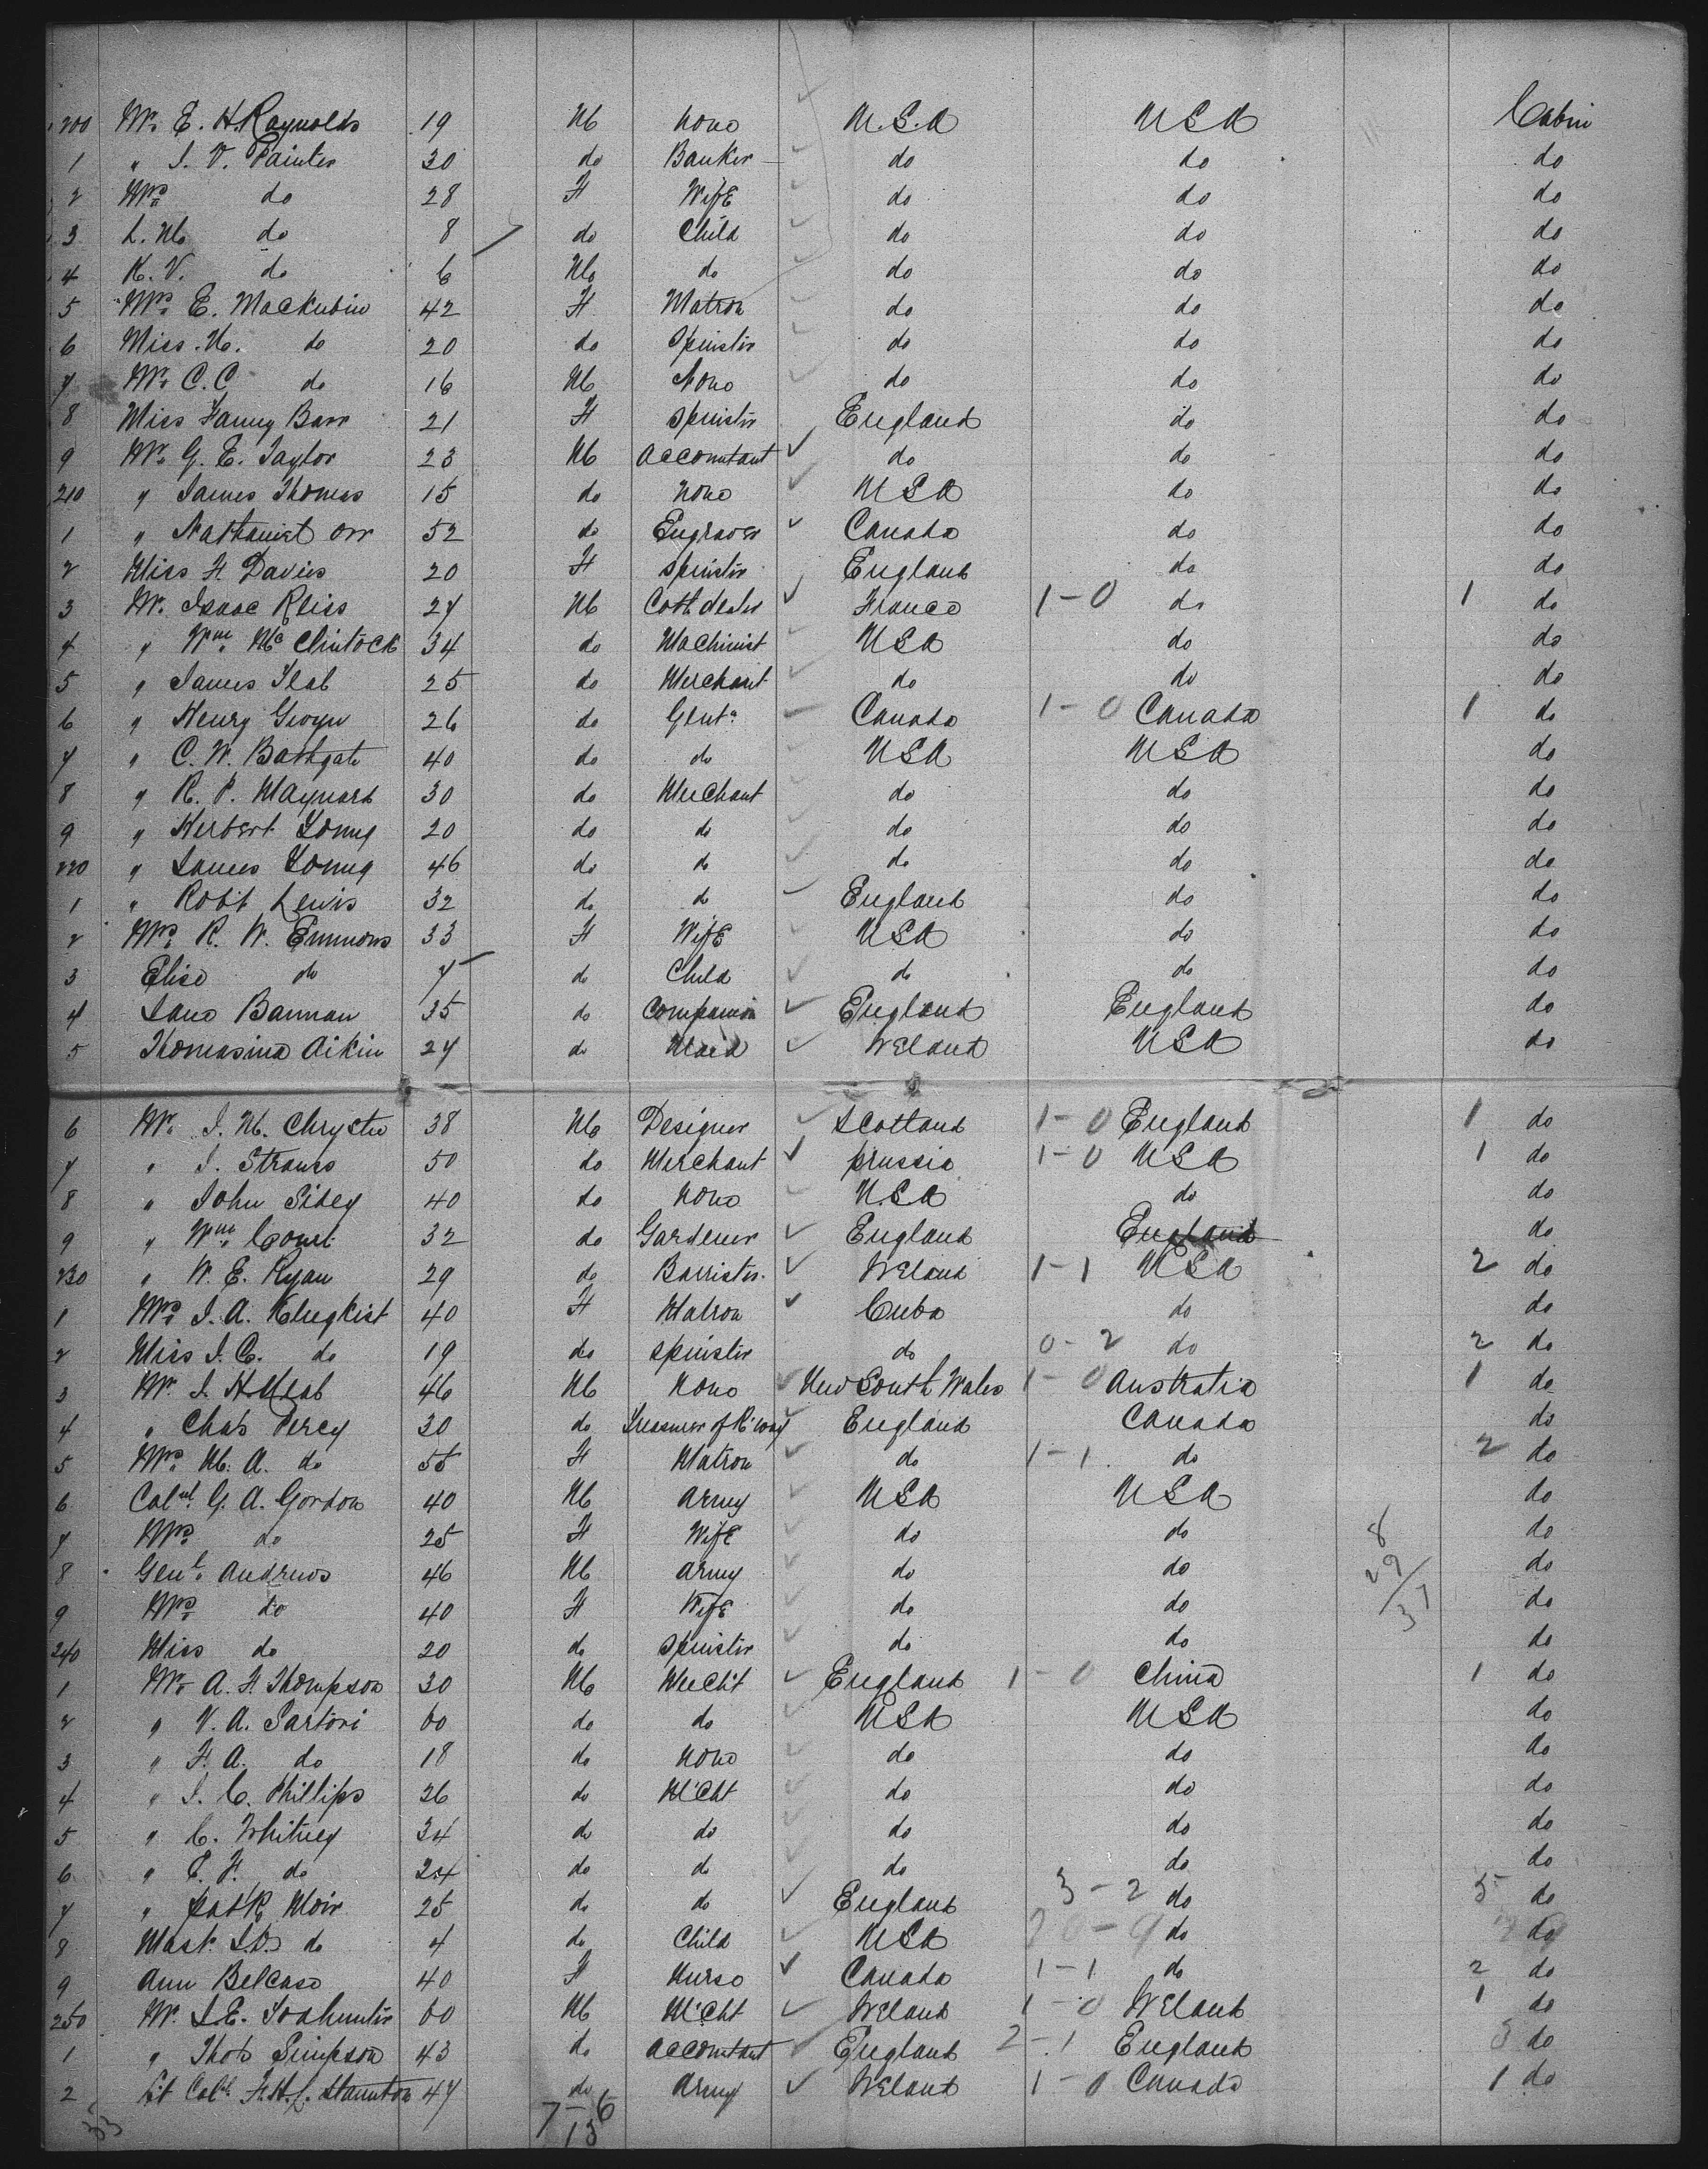 200 Mr. E. H. Raynolds 19 M None U.S.A USA Cabin
1 " J. V. Painter 30 do Banker do do do
2 Mrs do 28 F Wife do do do
3 L. M. do 8 do Child do do do
4 K. V. do 6 M do do do do
5 Mrs E. Mackubin 42 F Matron do do do
6 Miss M. do 20 do Spinster do do do
7 Mr. C. C do 16 M None do do do
8 Miss Fanny Barr 21 F Spinster England do do
9 Mr. G. E. Taylor 23 M Accountant do do do
210 " James Thomas 15 do None USA do do
1 " Nathaniel Orr 52 do Engraver Canada do do
2 Miss F. Davies 20 F Spinster England do do
3 Mr. Isaac Reiss 27 M France 1-0 do 1 do
4 " Wm. Mc Clintock 34 do Machinist USA do do
5 " James 25 do Merchant do do do
6 " Henry Gwyn 26 do Gent. Canada 1-0 Canada 1 do
7 " C. W. Bathgate 40 do do USA USA do
8 " R. P. Maynard 30 do Merchant do do do
9 " Herbert Young 20 do do do do do
220 " James Young 46 do do do do do
1 " Robt Lewis 32 do do England do do
2 Mrs. R. W. Emmons 33 F Wife USA do do
3 Elise do 7 do Child do do do
4 Jane Bannan 35 do Companion England England do
5 Thomasina Aikin 27 do Maid Ireland USA do
6 Mr. J. M. Chrystie 38 M Designer Scotland 1-0 England 1 do
7 " J. Strauss 50 do Merchant Prussia 1-0 USA 1 do
8 " John Sidey 40 do None USA do do
9 " Wm. Court 32 do Gardener England England do
230 " W. E. Ryan 29 do Barrister. Ireland 1-1 USA 2 do
1 Mrs. J. A. Klugkist 40 F Matron Cuba do do
2 Miss J. C. do 19 do Spinster do 0-2 do 2 do
3 Mr. J. 46 M None New South Wales 1-0 Australia 1 do
4 " Chas Percy 30 do Treasurer of R'way England Canada do
5 Mrs. M. A. do 55 F Matron do 1-1. do 2 do
6 Colnl. G. A. Gordon 40 M Army USA USA do
7 Mrs. do 25 F Wife do do 8 do
8 Genl. Andrews 46 M Army do do 29 do
9 Mrs. do 40 F Wife do do 37 do
240 Miss do 20 do Spinster do do do
1 Mr. A. F. Thompson 30 M Mercht England 1-0 China 1 do
2 " V. A. Sartori 60 do do USA USA do
3 " F. A. do 18 do None do do do
4 " J. C. Phillips 26 do M'cht do do do
5 " C. Whitney 34 do do do do do
6 " E. F. do 24 do do do do do
7 " Moir 25 do do England 3-2 do 5 do
8 Mast. do 4 do Child USA do do
9 Ann Belcaso 40 F Nurse Canada 1-1 do 2 do
250 Mr. J. E. 60 M M'cht Ireland 1-0 Ireland 1 do
1 " Thos Simpson 43 do Accountant England 2-1 England 3 do
2 Lt Coll. F. H. L. Staunton 47 do Army Ireland 1-0 Canada 1 do
33 7-6
13